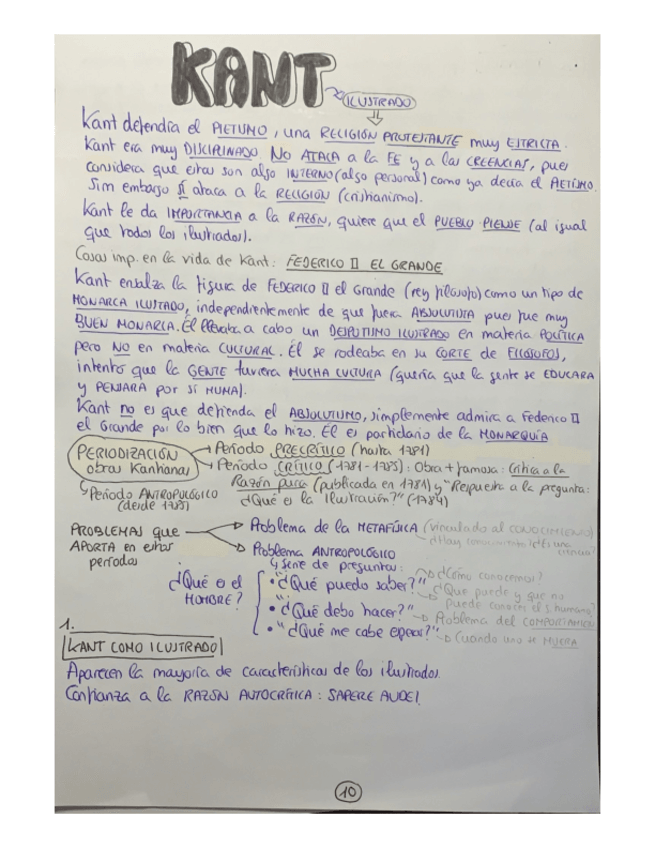 KANT
ILUSTRADO
Kant defendía el PIETISMO, una RELIGIÓN PROTESTANTE muy ESTRICTA.
Kant era muy DISCIPLINADO. NO ATACA a la FE y a las CREENCIAS, pues
considera que estas son algo INTERNO (algo personal) como ya decía el AETISMO.
Sim embargo SÍ ataca a la RELIGIÓN (cristianismo).
Kant le da IMPORTANCIA a la RAZÓN, quiere que el PUEBLO PIENSE (al igual
que todos los ilustrados).
Cosas imp. en la vida de Kant: FEDERICO II EL GRANDE
Kant ensalza la figura de FEDERICO II el Grande (rey filósofo) como un tipo de
MONARCA ILUSTADO, independientemente de que fuera ABSOLUTISTA pues fue muy
BUEN MONARCA. Él llevaba a cabo un DESPOTISMO ILUSTRADO en materia POLÍTICA
pero NO en materia CULTURAL. Él se rodeaba en su CORTE de FILÓSOFOS,
intentó que la GENTE tuviera MUCHA CULTURA (quería que la gente se EDUCARA
y PENSARA por SÍ MISMA).
Kant no es que defienda el ABSOLUTISMO, simplemente admira a Federico II
el Grande por lo bien que lo hizo. Él es partidario de la MONARQUÍA
PERIODIZACIÓN obras Kantianas
→ Período PRECRÍTICO (hasta 1781)
→ Período CRÍTICO (1781-1785): Obra + famosa: Crítica a la
Razón pura (publicada en 1781) y "Respuesta a la pregunta:
¿Qué es la Ilustración?" (1784)
↳ Período ANTROPOLÓGICO
(desde 1785)
PROBLEMAS que
APORTA en estos
períodos
Problema de la METAFÍSICA (vinculado al CONOCIMIENTO)
¿Hay conocimiento? ¿Es una ciencia?
Problema ANTROPOLÓGICO
↳ serie de preguntas:
¿Qué es el
HOMBRE?
• "¿Qué puedo saber?"
→ ¿Cómo conocemos?
→ ¿Qué puede y que no
puede conocer el s. humano?
• "¿Qué debo hacer?" → Problema del COMPORTAMIEN
• "¿Qué me cabe esperar?" → Cuando uno se MUERA
1.
KANT COMO ILUSTRADO
Aparecen la mayoría de características de los ilustrados.
Confianza a la RAZÓN AUTOCRÍTICA: SAPERE AUDE!
10